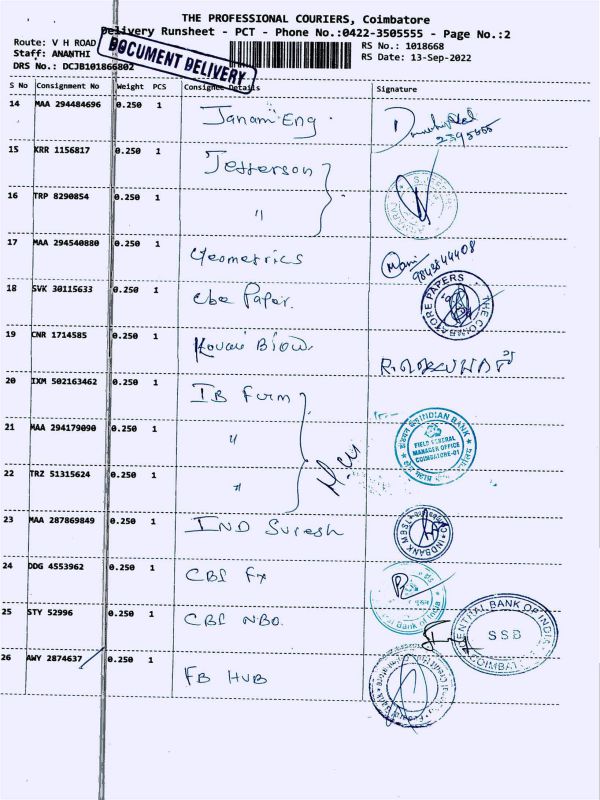 THE PROFESSIONAL COURIERS, Coimbatore
Delivery Runsheet - PCT - Phone No.:0422-3505555 - Page No.:2
Route: V H ROAD
RS No.: 1018668
Staff: ANANTHI
RS Date: 13-Sep-2022
DRS No.: DCJB101866802
DOCUMENT DELIVERY
S No Consignment No Weight PCS Consignee Details Signature
14 MAA 294484696 0.250 1 Janam Eng.
2395555
15 KRR 1156817 0.250 1 Jefferson
16 TRP 8290854 0.250 1 "
17 MAA 294540880 0.250 1 Geometrics
Mani 9843844408
18 SVK 30115633 0.250 1 Cbe Paper.
THE COIMBATORE PAPERS
19 CNR 1714585 0.250 1 Kovai
20 IXM 502163462 0.250 1 IB Firm
21 MAA 294179090 0.250 1 "
INDIAN BANK
FIELD GENERAL
MANAGER OFFICE
COIMBATORE-01
22 TRZ 51315624 0.250 1 "
23 MAA 287869849 0.250 1 IND Suresh
INDBANK MBSL
24 DDG 4553962 0.250 1 CBI Fx
al Bank of India
25 STY 52996 0.250 1 CBI NBO.
CENTRAL BANK OF INDIA
SSB
COIMBAT
26 AWY 2874637 0.250 1 FB HUB